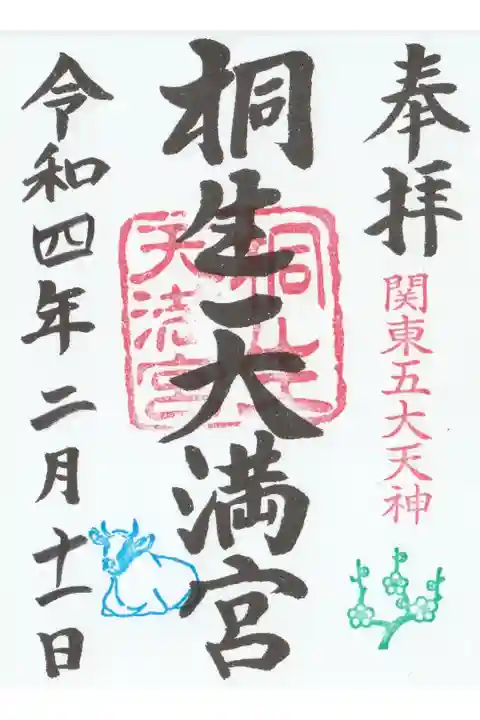 奉拝
関東五大天神
桐生天満宮
桐生天満宮
令和四年二月十一日